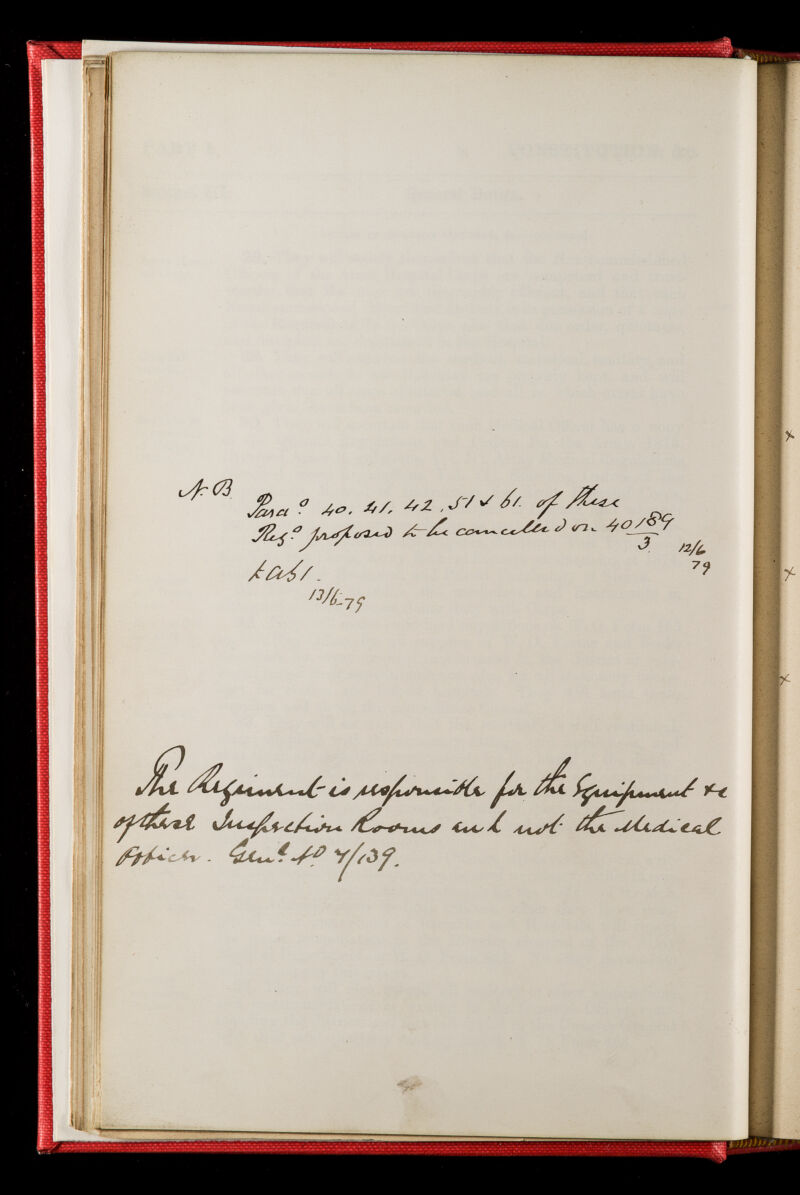 N.B
Para.s 40. 41. 42. 51 & 61. of these
Reg.s proposed to be cancelled on 40/89/3 12/6/79
13/6-79
The Regiment is responsible for the Equipment &c
of these Inspection Rooms and not the Medical
Officer. Genl. No. 7/139.